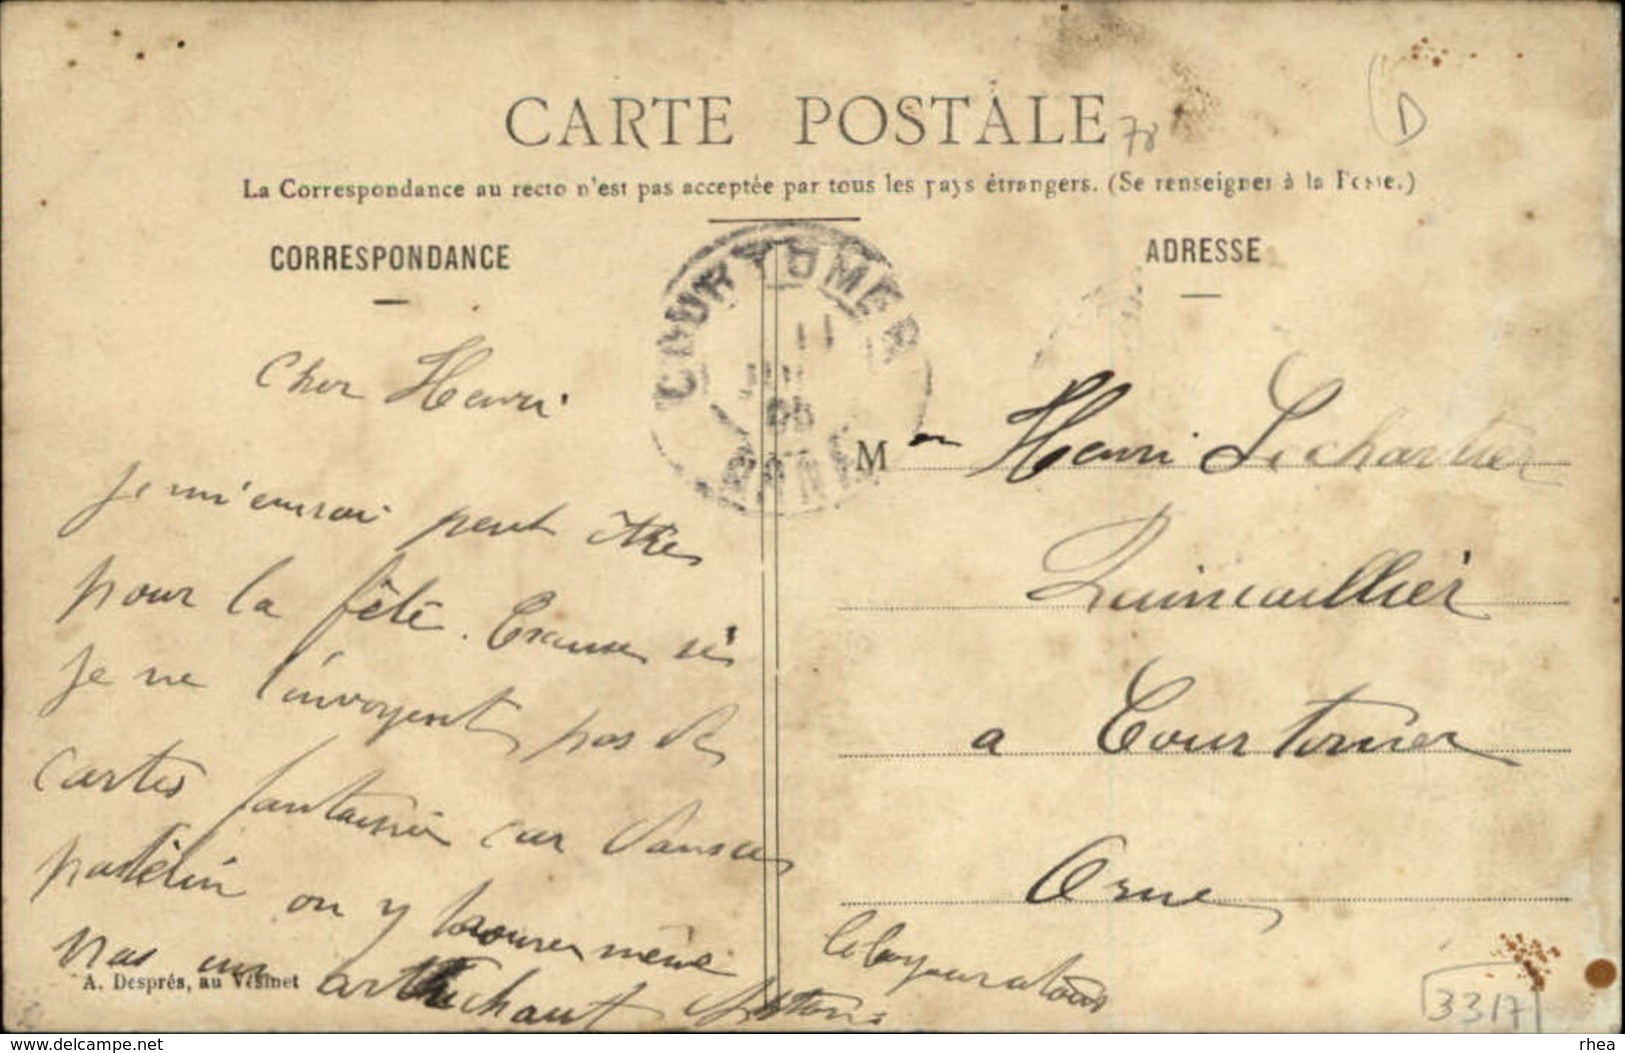 CARTE POSTALE
78
D
La Correspondance au recto n'est pas acceptée par tous les pays étrangers. (Se renseigner à la Poste.)
CORRESPONDANCE
ADRESSE
COURTOMER
ORNE
Cher Henri
je m'ennrai peut être
pour la fête. Excuse si
je ne t'envoyent pas de
cartes fantaisie car dans ce
patelin on y trouve même
pas un artichaut
M Henri Lechartier
Quincaillier
a Courtomer
Orne
A. Després, au Vésinet
3317
delcampe.net
rhea